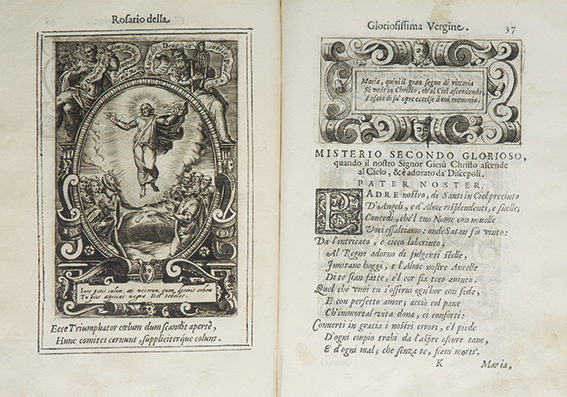 Rosario della
Ecce Triumphator cœlum dum scandit apertè,
Hunc comites cernunt, suppliciterque colunt.
Gloriosissima Vergine. 37
Maria, quivi il gran segno di vittoria
Si vede in Christo, ch'al Ciel ascendendo
Lascia di su' opre eccelse à noi memoria.
MISTERIO SECONDO GLORIOSO,
quando il nostro Signor Giesù Christo ascende
al Cielo, & è adorato da' Discepoli.
PATER NOSTER.
PADRE nostro, di Santi in Ciel precinto
D'Angeli, e d'Alme risplendenti, e snelle,
Concedi, che'l tuo Nome con nouelle
Voci essaltiamo: onde Satan sia vinto:
Da l'intricato, e cieco laberinto,
Al Regno adorno di fulgenti stelle,
Inuitane hoggi, e l'Alme nostre Ancelle
Di te sian fatte, e'l cor sia teco auinto.
Quel che vuoi tu s'osserui ogni hor con fede,
E con perfetto amor; acciò col pane
Ch'immortal vita dona, ci conforti:
Conuerti in gratia i nostri errori, e'l piede
D'ogni empio trahi da l'aspre oscure tane,
E d'ogni mal; che senza te, siam morti.
K Maria,